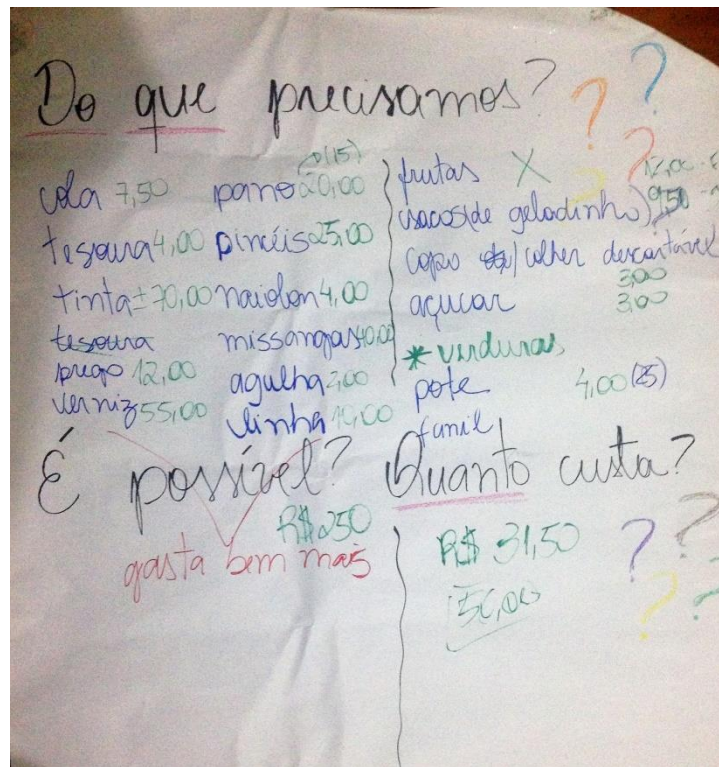 Do que precisamos?
cola 7,50
tesoura 4,00
tinta ± 70,00
tesoura
prego 12,00
verniz 55,00
(15)
pano 20,00
pincéis 25,00
naiolon 4,00
missangas 40,00
agulha 2,00
linha 10,00
frutas X 12,00
(sacos(de geladinho) 9,50
copo /colher descartável
3,00
açucar 3,00
* verduras
pote 4,00 (25)
funil
É possível? Quanto custa?
R$ 250
gasta bem mais
R$ 31,50
50,00